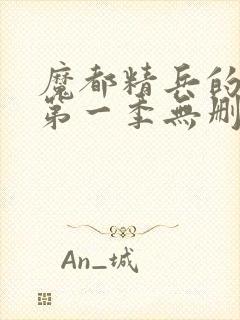 魔都精兵的
第一季無刪
An_城